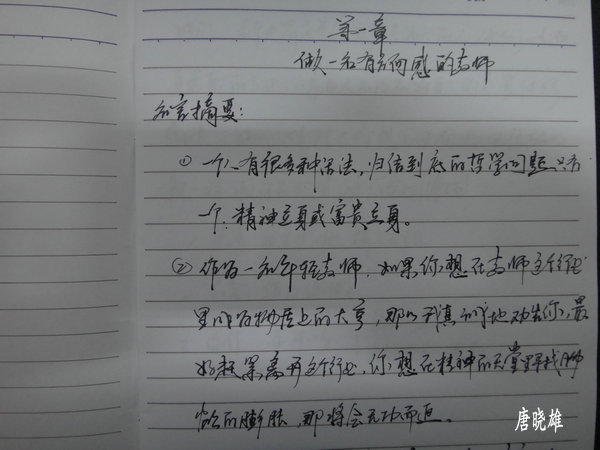 第一章
做一名有方向感的教师
名言摘要：
① 一个人有很多种活法，归结到底的哲学问题只有
一个：精神立身或富贵立身。
② 作为一名年轻教师，如果你想在教师这个行业
里成为物质上的大亨，那么我真诚地劝告你，最
好趁早离开这个行业，你想在精神的天堂里寻找
的膨胀，那将会无功而返。
唐晓雄